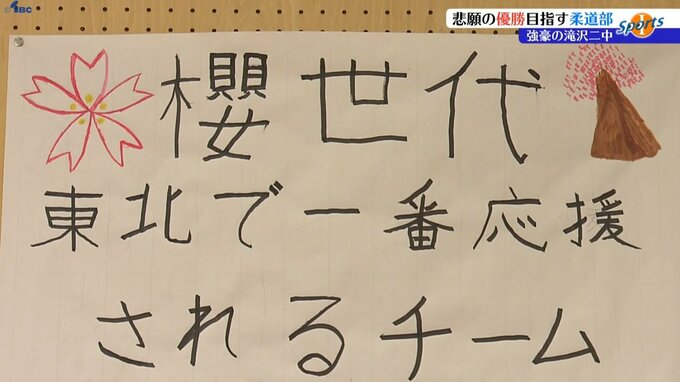 IBC
悲願の優勝目指す柔道部
強豪の滝沢二中
Sports
櫻世代
東北で一番応援
されるチーム